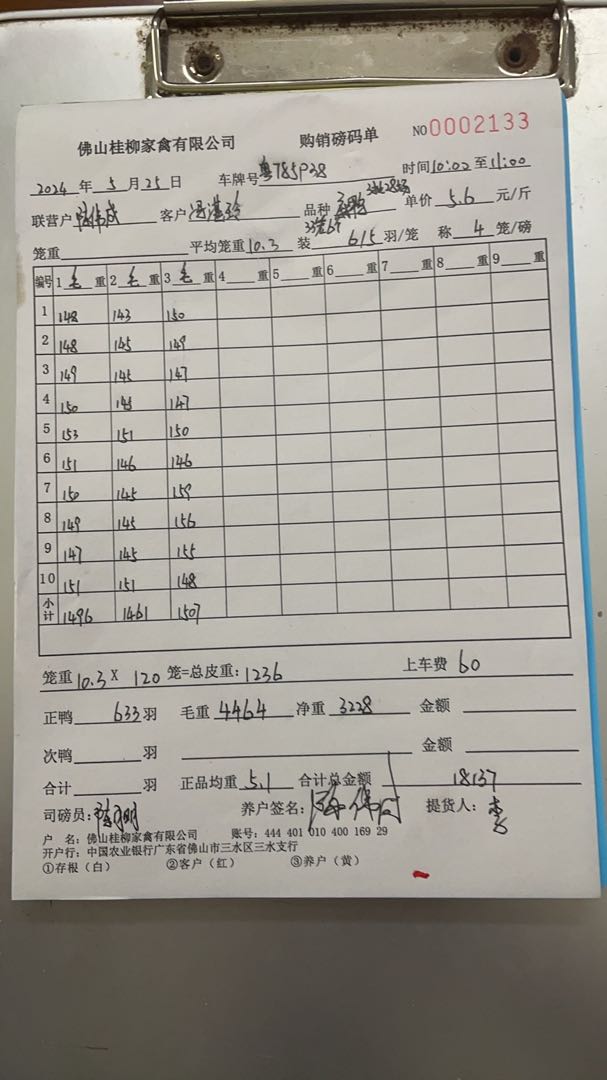 佛山桂柳家禽有限公司 购销磅码单 NO 0002133
2024 年 5 月 25 日 车牌号 粤T85P38 时间 10:02 至 11:00
联营户 客户 品种 单价 5.6 元/斤
笼重 平均笼重 10.3 装 6/5 羽/笼 称 4 笼/磅
编号 1 毛 重 2 毛 重 3 毛 重 4 重 5 重 6 重 7 重 8 重 9 重
1 148 143 150
2 148 145 149
3 149 145 147
4 150 145 147
5 153 151 150
6 151 146 146
7 150 145 159
8 149 145 156
9 147 145 155
10 151 151 148
小计 1496 1461 1507
笼重 10.3 X 120 笼=总皮重: 1236 上车费 60
正鸭 633 羽 毛重 4464 净重 3228 金额
次鸭 羽 金额
合计 羽 正品均重 5.1 合计总金额 18137
司磅员: 养户签名: 提货人: 李
户 名: 佛山桂柳家禽有限公司 账号: 444 401 010 400 169 29
开户行: 中国农业银行广东省佛山市三水区三水支行
①存根(白) ②客户(红) ③养户(黄)